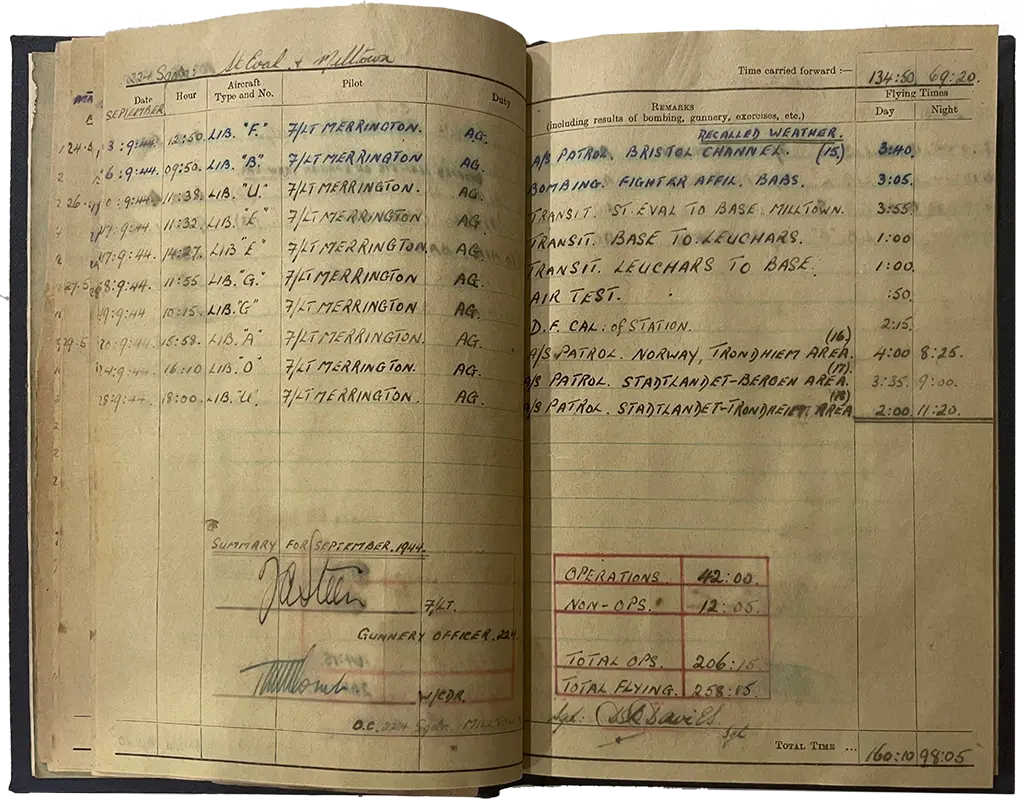 224 Sqdn: St Eval & Milltown
Time carried forward :— 134:50 69:20.
Date Hour Aircraft Type and No. Pilot Duty
REMARKS (including results of bombing, gunnery, exercises, etc.)
Flying Times
Day Night
SEPTEMBER
RECALLED WEATHER.
3:9:44 12:50. LIB. "F." F/LT MERRINGTON. AG. A/S PATROL. BRISTOL CHANNEL. (15) 3:40.
6:9:44. 09:50. LIB. "B" F/LT MERRINGTON AG. BOMBING. FIGHTER AFFIL. BABS. 3:05.
11:38. LIB. "U." F/LT MERRINGTON. AG. TRANSIT. ST. EVAL TO BASE. MILLTOWN. 3:55
17:9:44 11:32 LIB. "E" F/LT MERRINGTON AG. TRANSIT. BASE TO LEUCHARS. 1:00
17:9:44. 14:27. LIB "E" F/LT MERRINGTON. AG. TRANSIT. LEUCHARS TO BASE. 1:00.
18:9:44. 11:55 LIB. "G." F/LT MERRINGTON AG. AIR TEST. :50.
19:9:44 10:15. LIB. "G" F/LT MERRINGTON. AG. D.F. CAL. of STATION. 2:15.
20:9:44. 15:58. LIB. "A" F/LT MERRINGTON. AG. A/S PATROL. NORWAY, TRONDHIEM AREA. (16) 4:00 8:25.
24:9:44. 16:10 LIB. "O" F/LT MERRINGTON. AG. A/S PATROL. STADTLANDET-BERGEN AREA. (17) 3:35. 9:00.
28:9:44. 18:00. LIB. "U" F/LT MERRINGTON. AG. A/S PATROL. STADTLANDET-TRONDHEIM AREA (18) 2:00. 11:20.
SUMMARY FOR SEPTEMBER. 1944.
F/LT.
GUNNERY OFFICER. 224.
W/CDR.
O.C. 224 Sqdn. MILLTOWN
OPERATIONS. 42:00.
NON-OPS. 12:05.
TOTAL OPS. 206:15.
TOTAL FLYING. 258:15.
Sgd: Davies. Sgt
TOTAL TIME ... 160:10 98:05